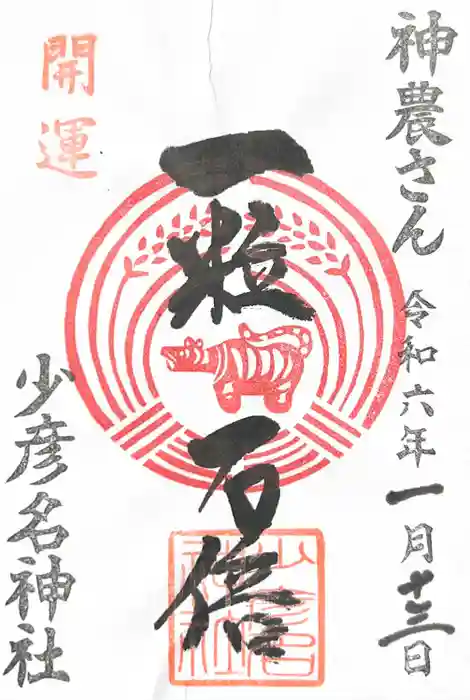 神農さん
令和六年一月十三日
開運
一粒万倍
少彦名神社
少彦名神社